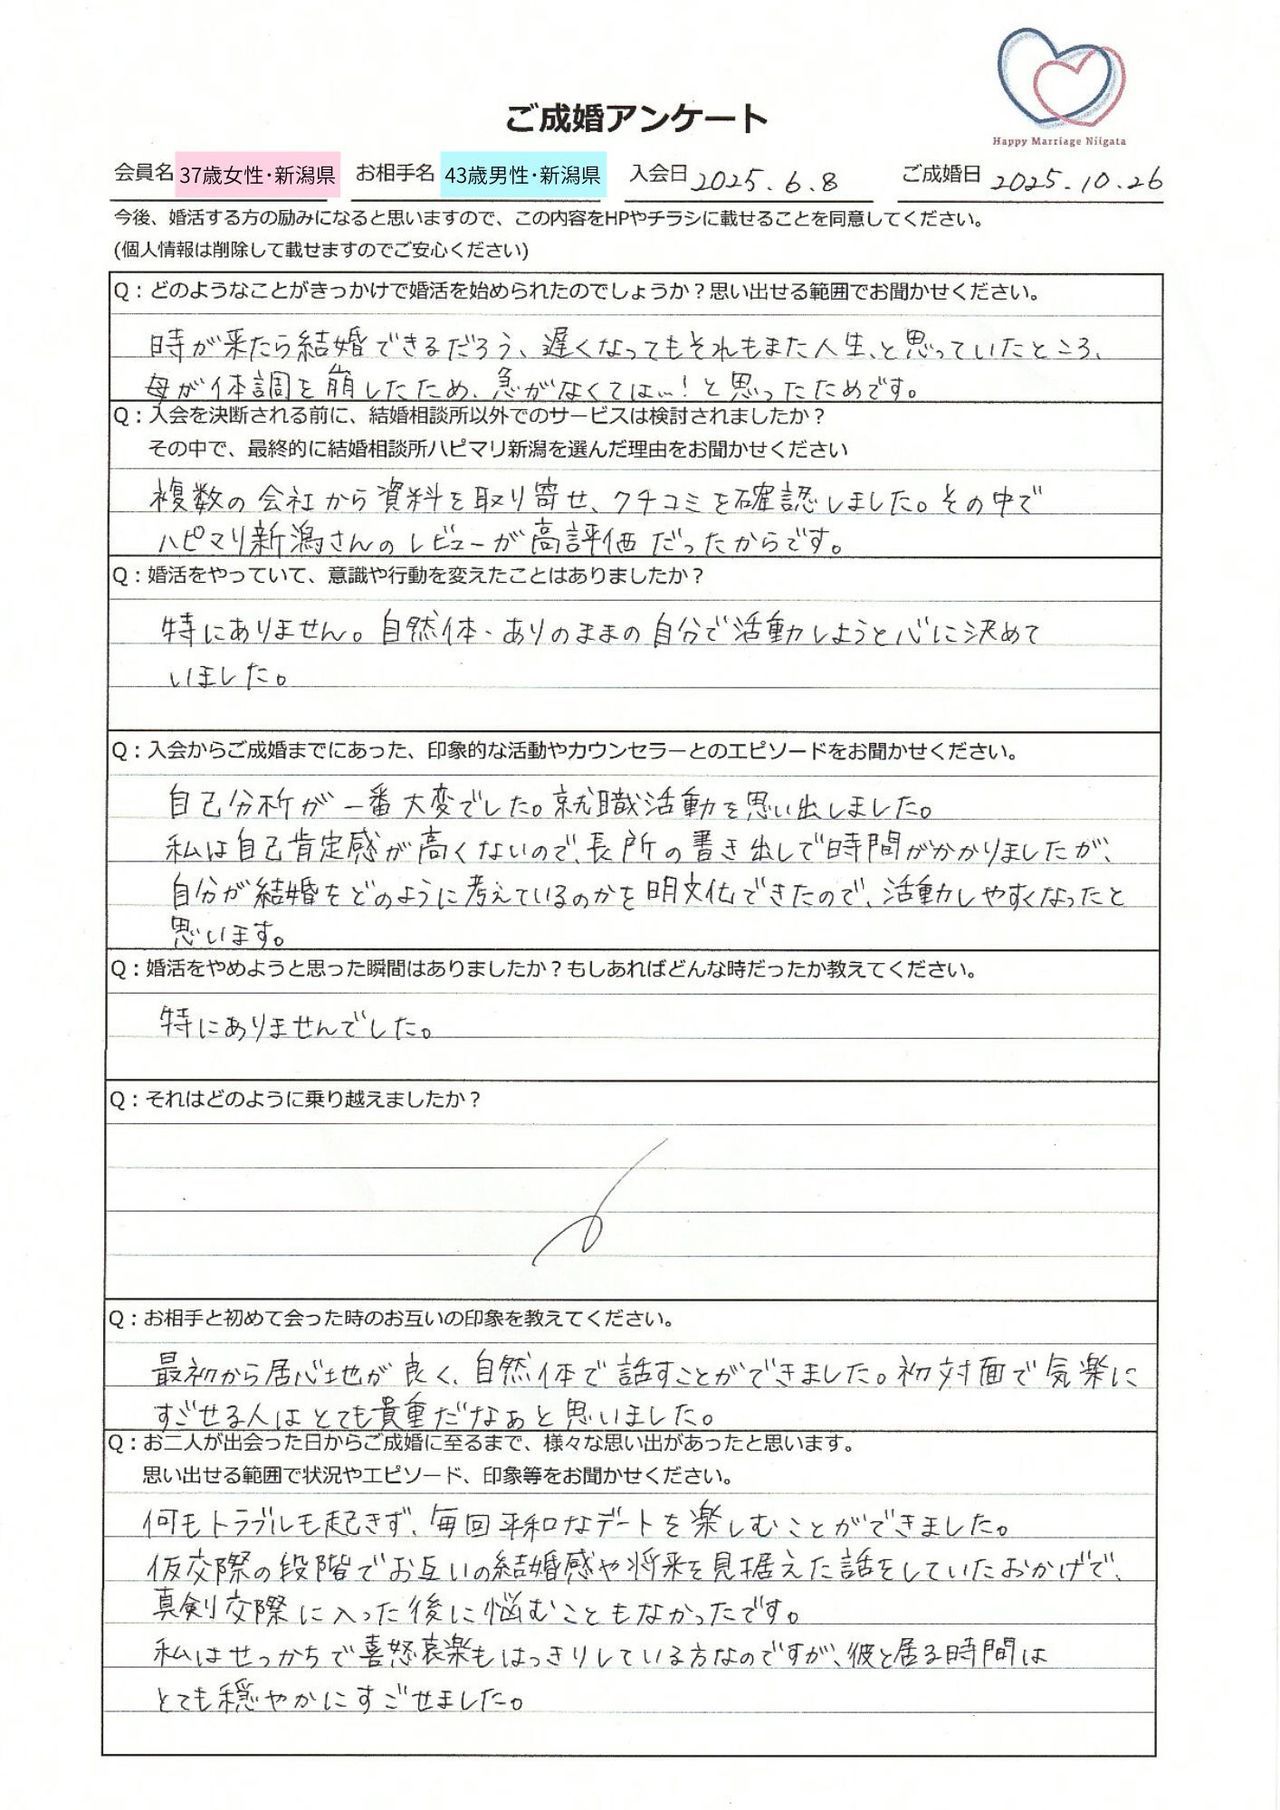 Happy Marriage Niigata
ご成婚アンケート
会員名 37歳女性・新潟県 お相手名 43歳男性・新潟県 入会日 2025.6.8 ご成婚日 2025.10.26
今後、婚活する方の励みになると思いますので、この内容をHPやチラシに載せることを同意してください。
(個人情報は削除して載せますのでご安心ください)
Q：どのようなことがきっかけで婚活を始められたのでしょうか？思い出せる範囲でお聞かせください。
時が来たら結婚できるだろう、遅くなってもそれもまた人生、と思っていたところ、
母が体調を崩したため、急がなくては…！と思ったためです。
Q：入会を決断される前に、結婚相談所以外でのサービスは検討されましたか？
その中で、最終的に結婚相談所ハピマリ新潟を選んだ理由をお聞かせください
複数の会社から資料を取り寄せ、クチコミを確認しました。その中で
ハピマリ新潟さんのレビューが高評価だったからです。
Q：婚活をやっていて、意識や行動を変えたことはありましたか？
特にありません。自然体・ありのままの自分で活動しようと心に決めて
いました。
Q：入会からご成婚までにあった、印象的な活動やカウンセラーとのエピソードをお聞かせください。
自己分析が一番大変でした。就職活動を思い出しました。
私は自己肯定感が高くないので、長所の書き出しで時間がかかりましたが、
自分が結婚をどのように考えているのかを明文化できたので、活動しやすくなったと
思います。
Q：婚活をやめようと思った瞬間はありましたか？もしあればどんな時だったか教えてください。
特にありませんでした。
Q：それはどのように乗り越えましたか？
Q：お相手と初めて会った時のお互いの印象を教えてください。
最初から居心地が良く、自然体で話すことができました。初対面で気楽に
すごせる人はとても貴重だなぁと思いました。
Q：お二人が出会った日からご成婚に至るまで、様々な思い出があったと思います。
思い出せる範囲で状況やエピソード、印象等をお聞かせください。
何もトラブルも起きず、毎回平和なデートを楽しむことができました。
仮交際の段階でお互いの結婚感や将来を見据えた話をしていたおかげで、
真剣交際に入った後に悩むこともなかったです。
私はせっかちで喜怒哀楽もはっきりしている方なのですが、彼と居る時間は
とても穏やかにすごせました。